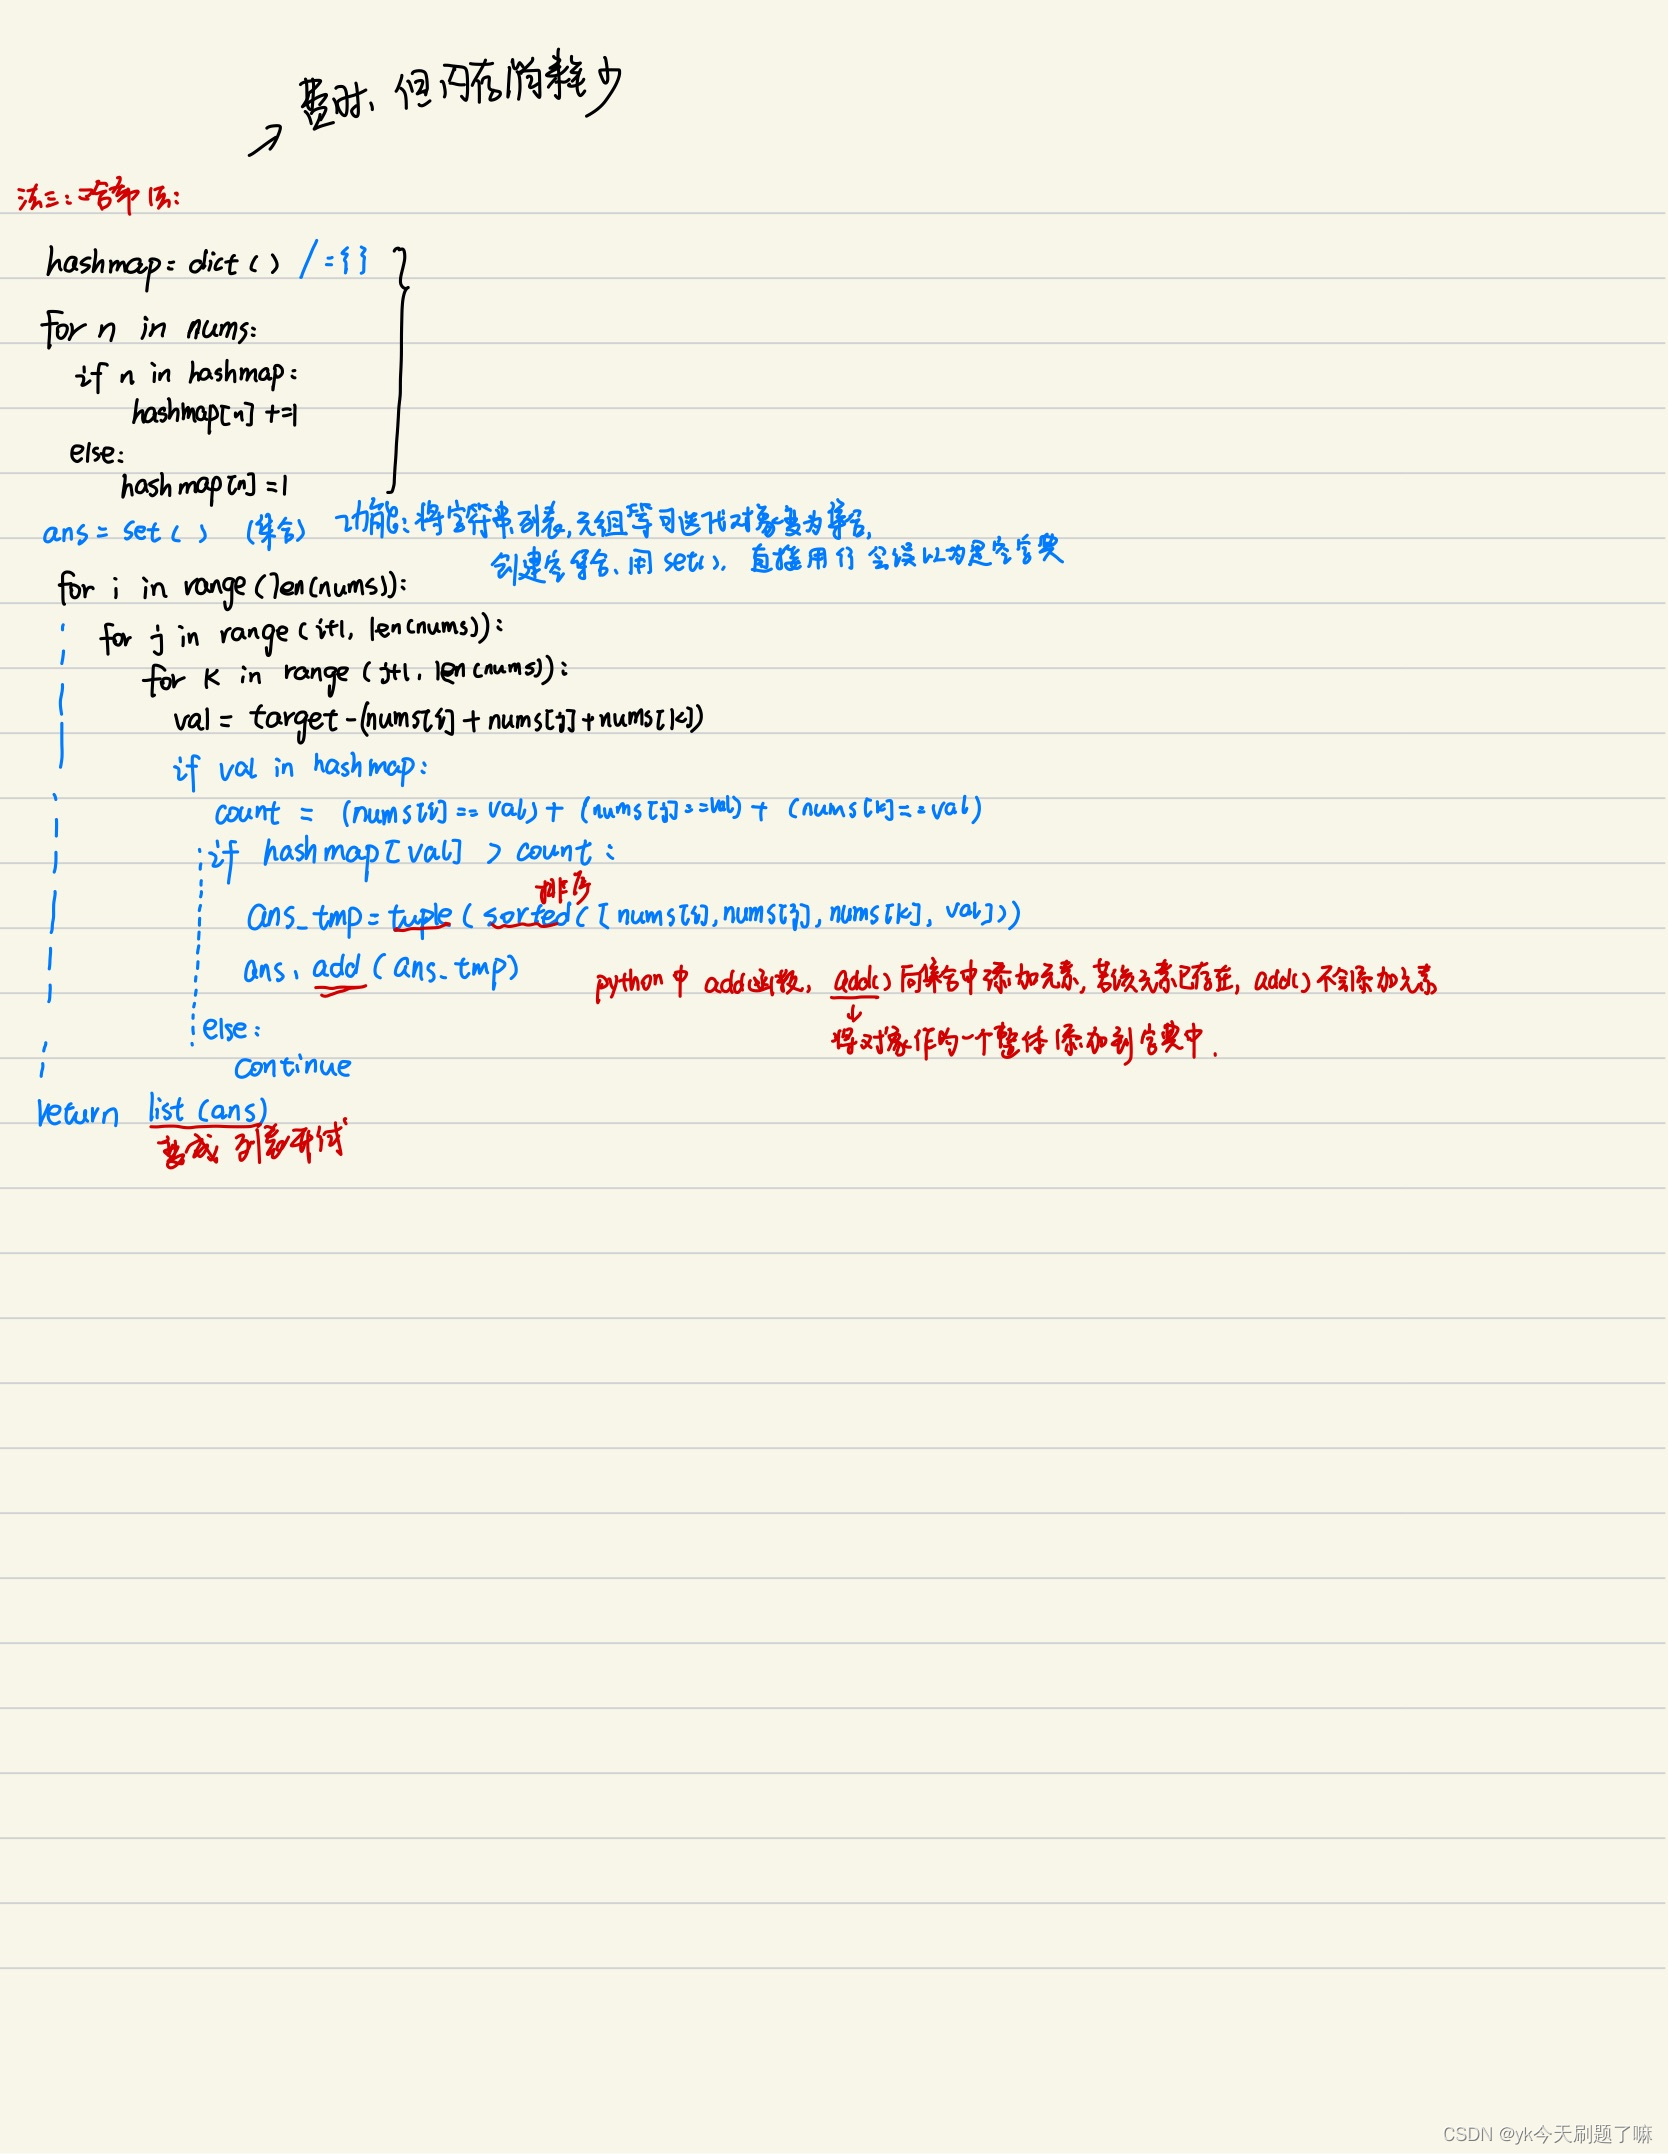 费时、但内存消耗少
法三:哈希法:
hashmap = dict() /={}
for n in nums:
if n in hashmap:
hashmap[n] +=1
else:
hashmap[n] =1
ans = set() (集合) 功能:将字符串列表,元组等可迭代对象变为集合,
创建空集合、用set(). 直接用{}会误以为是空字典
for i in range(len(nums)):
for j in range(i+1, len(nums)):
for k in range(j+1, len(nums)):
val = target-(nums[i]+nums[j]+nums[k])
if val in hashmap:
count = (nums[i]==val)+(nums[j]==val)+(nums[k]==val)
if hashmap[val] > count:
排序
ans_tmp=tuple(sorted([nums[i],nums[j],nums[k],val]))
ans.add(ans_tmp) python中add函数, add()向集合中添加元素,若该元素已存在, add()不会添加元素
将对象作为一个整体添加到字典中.
else:
continue
return list(ans)
变成列表形式
CSDN @yk今天刷题了嘛